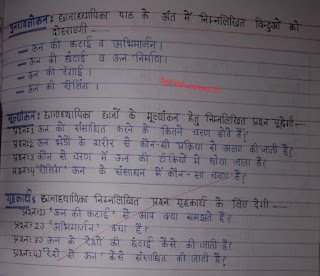 पुनरावलोकन: छात्राध्यापिका पाठ के अंत में निम्नलिखित बिन्दुओं को
दोहराएगी —
— ऊन की कटाई व अभिमार्जन।
— ऊन की छंटाई व ऊन निर्माण।
— ऊन की रंगाई।
— ऊन की रीलिंग।
मूल्यांकन: छात्राध्यापिका छात्रों के मूल्यांकन हेतु निम्नलिखित प्रश्न पूछेगी —
प्रश्न:1 ऊन को संसाधित करने के कितने चरण होते हैं?
प्रश्न:2 ऊन भेड़ों के शरीर से कौन-सी प्रक्रिया से अलग की जाती है?
प्रश्न:3 कौन से चरण में ऊन को टंकियों में धोया जाता है?
प्रश्न:4 'रीलिंग' ऊन के संसाधन में कौन-सा चरण है?
गृहकार्य: छात्राध्यापिका निम्नलिखित प्रश्न गृहकार्य के लिए देगी —
प्रश्न:1) 'ऊन की कटाई' से आप क्या समझते हैं?
प्रश्न:2) 'अभिमार्जन' क्या है?
प्रश्न:3) ऊन के रेशों की छंटाई कैसे की जाती है?
प्रश्न:4) रेशों से ऊन कैसे संसाधित की जाती है?